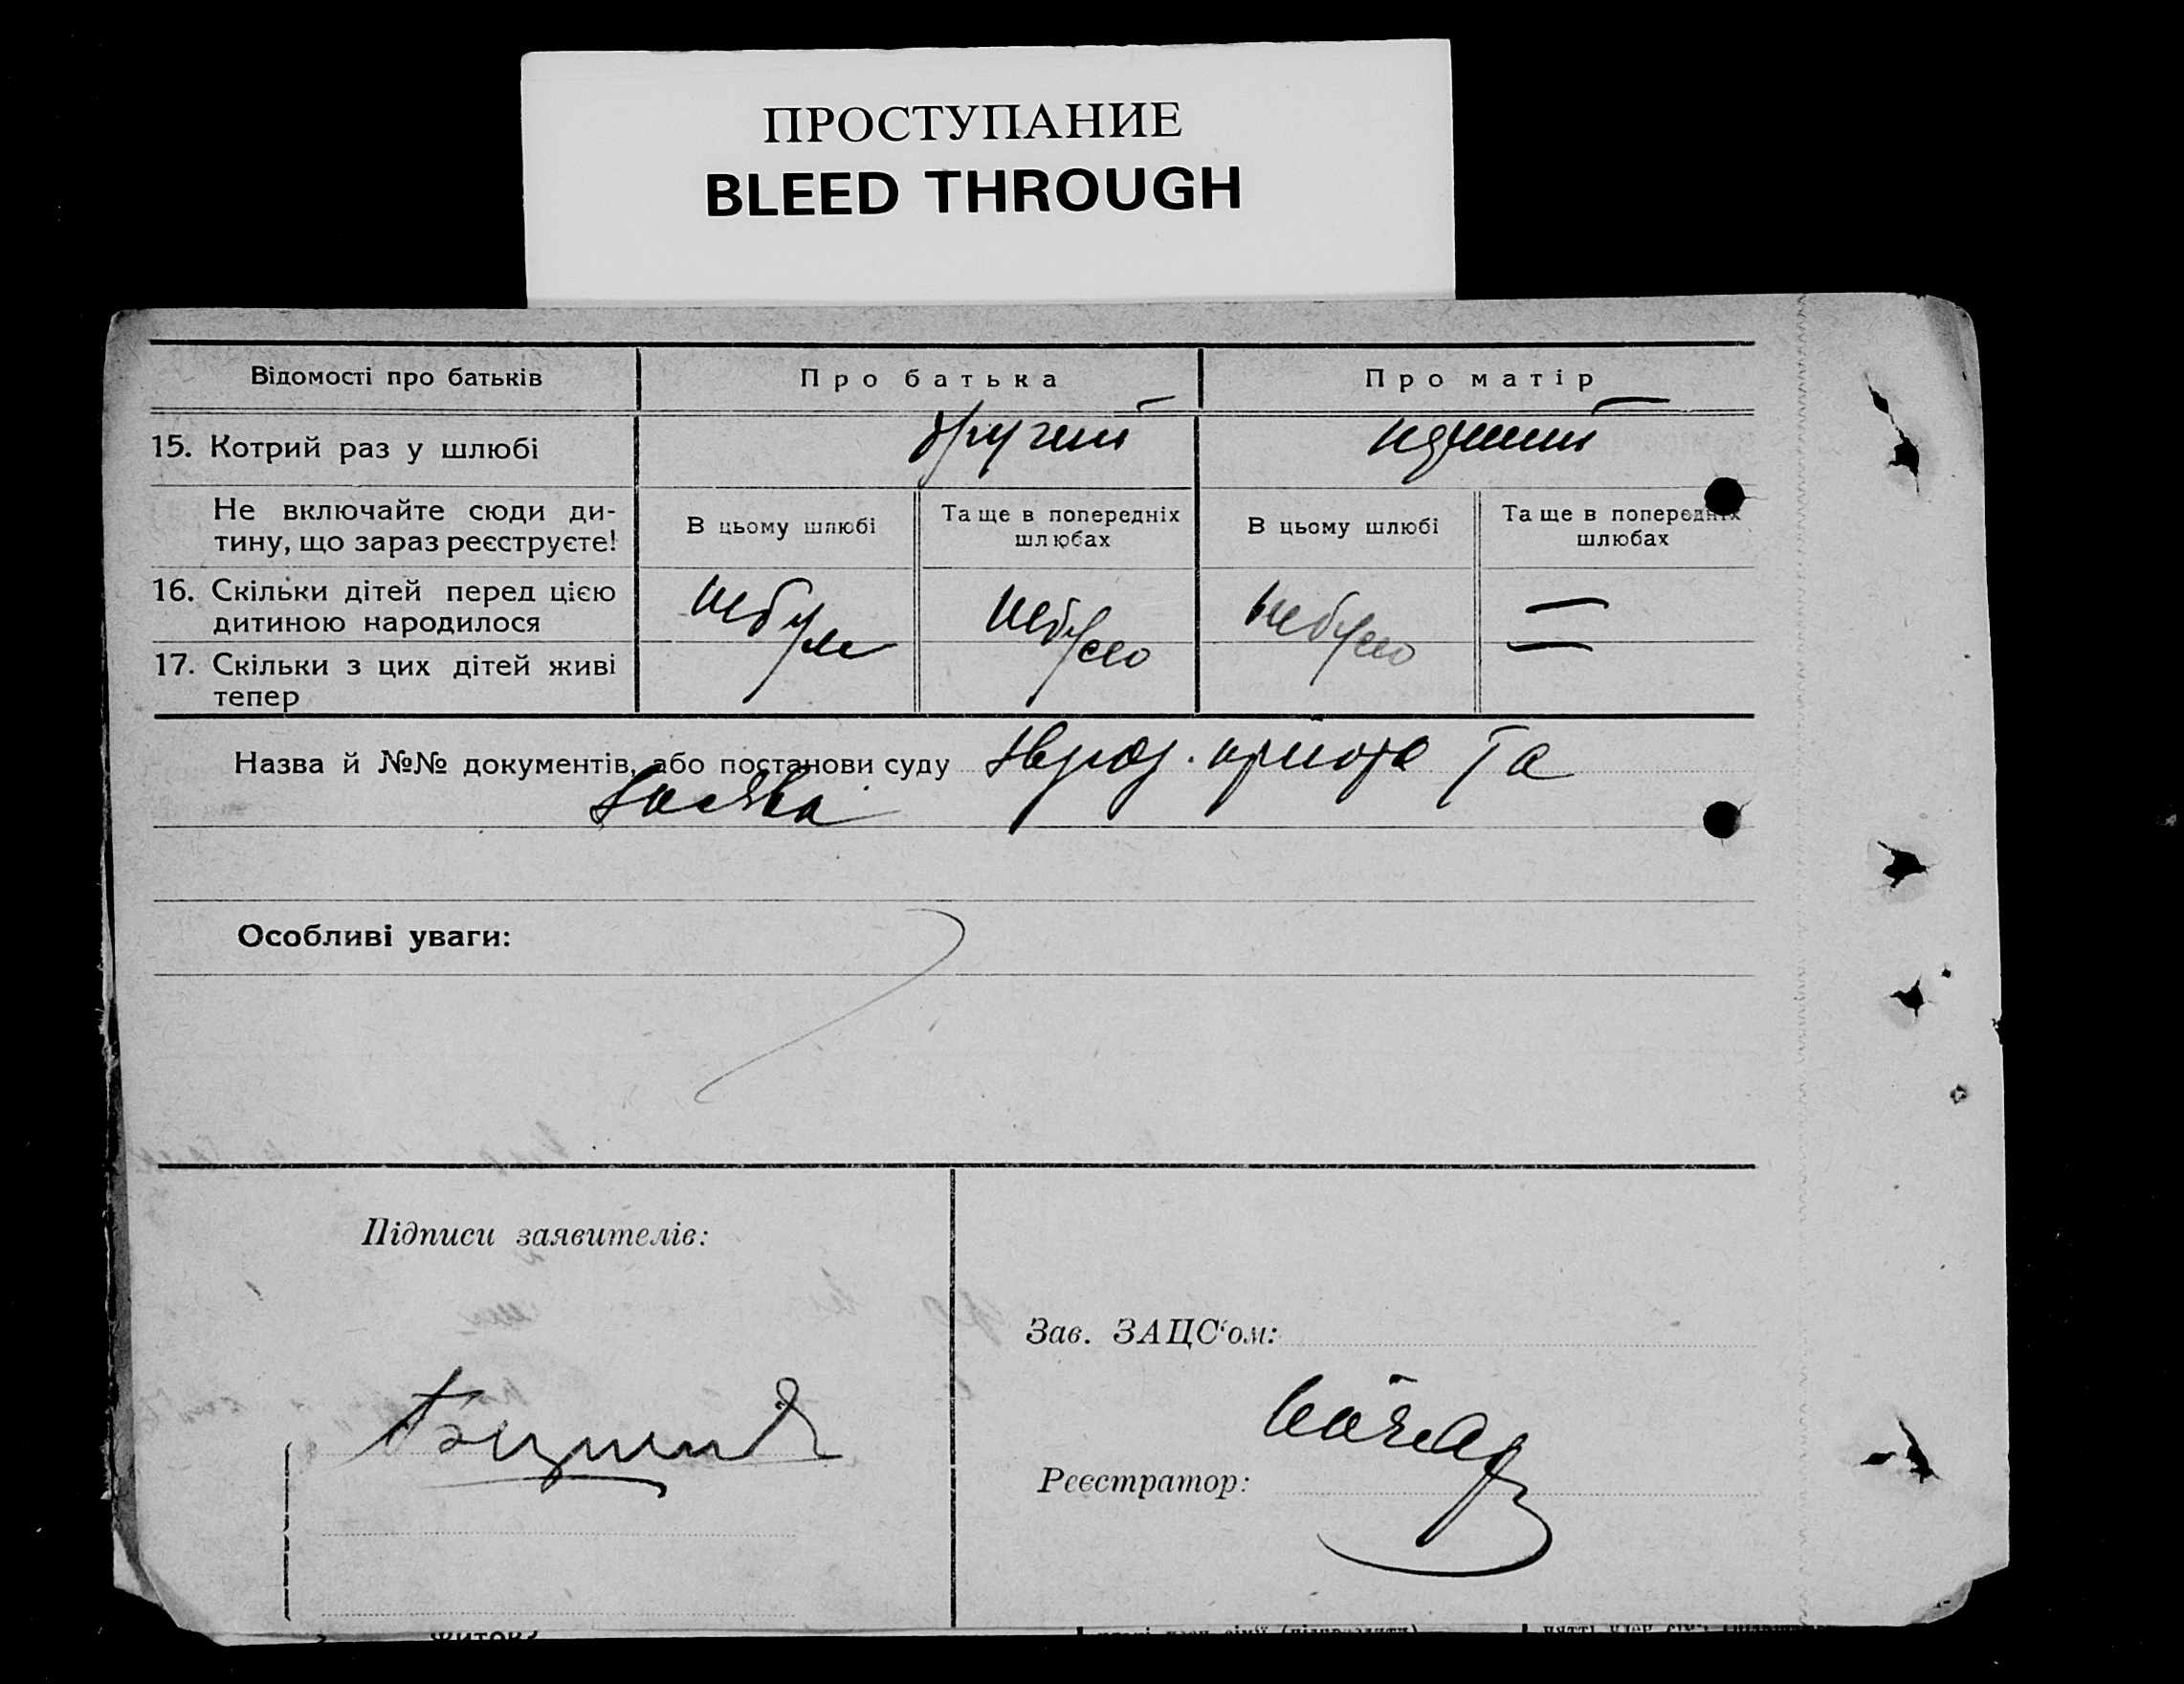 ПРОСТУПАНИЕ
BLEED THROUGH
Відомості про батьків
Про батька
Про матір
15. Котрий раз у шлюбі
другий
перший
Не включайте сюди ди-
тину, що зараз реєструєте!
В цьому шлюбі
Та ще в попередніх
шлюбах
В цьому шлюбі
Та ще в попередніх
шлюбах
16. Скільки дітей перед цією
дитиною народилося
небуло
небуло
небуло
—
17. Скільки з цих дітей живі
тепер
—
Назва й №№ документів, або постанови суду
та
Особливі уваги:
Підписи заявителів:
Зав. ЗАЦС'ом:
Реєстратор: